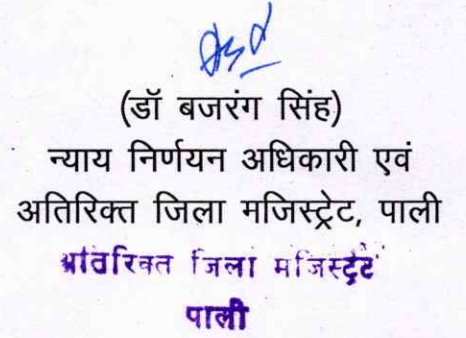 (डॉ बजरंग सिंह)
न्याय निर्णयन अधिकारी एवं
अतिरिक्त जिला मजिस्ट्रेट, पाली
अतिरिक्त जिला मजिस्ट्रेट
पाली